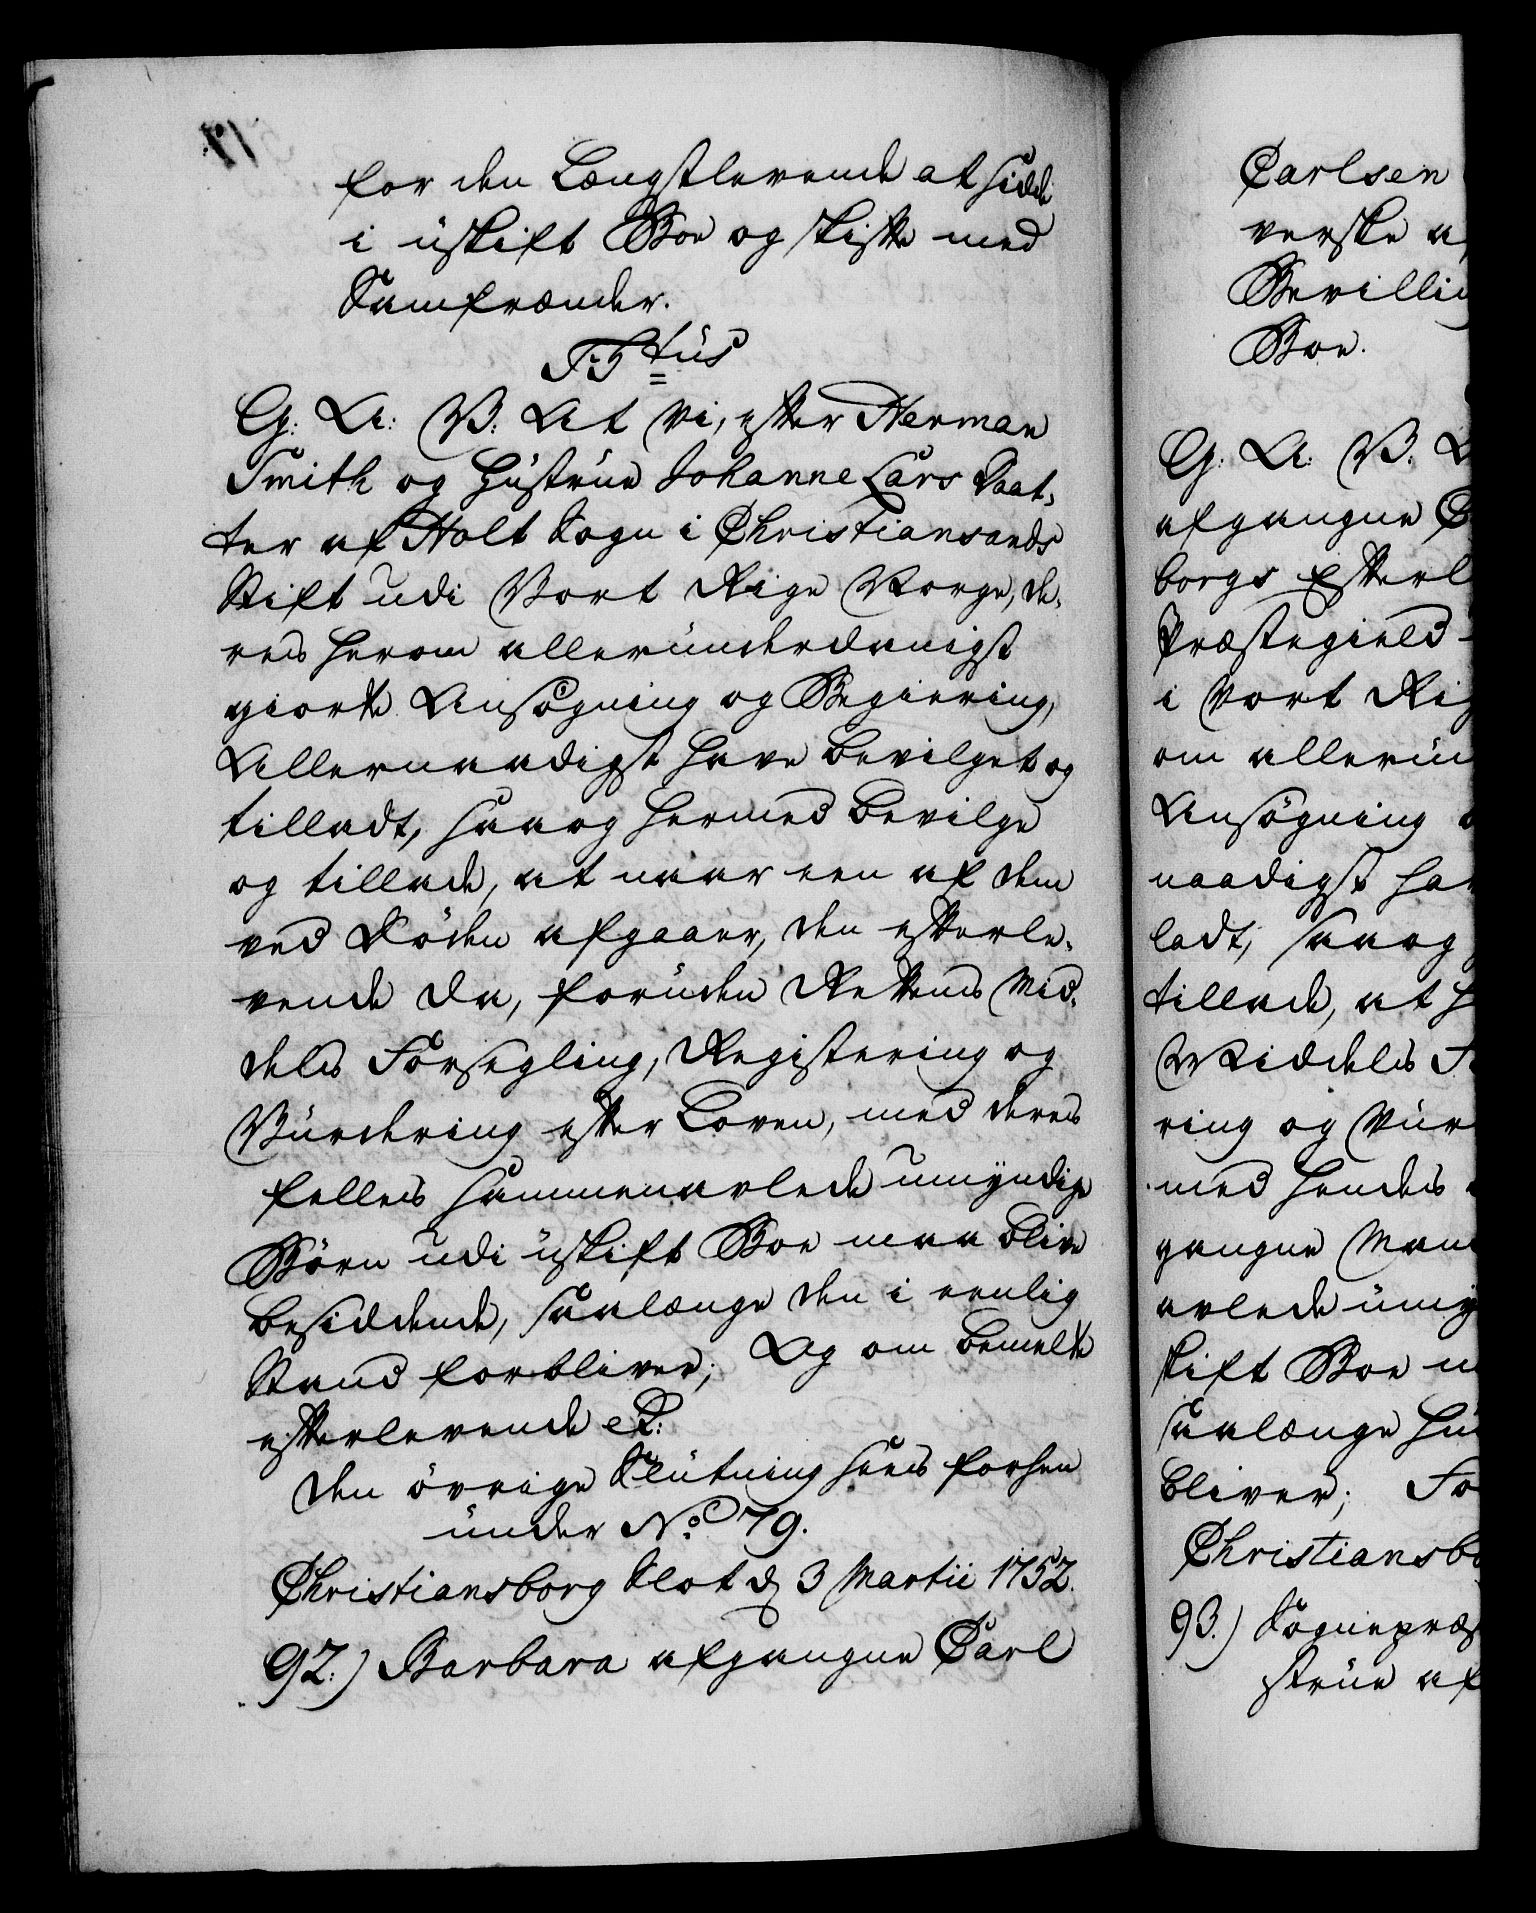 for den Længstlevende at sidde
i uskift Boe og skifte med
Samfrænder.
F: 5tus
G: A: V: At Vi, efter Herman
Smith og Hustrue Johanne Lars Daat-
ter af Holt Sogn i Christiansands
Stift udi Vort Rige Norge, de-
res herom allerunderdanigst
giorte Ansøgning og Begiering,
Allernaadigst have bevilget og
tilladt, saa og hermed bevilge
og tillade, at naar een af dem
ved Døden afgaaer, den efterle-
vende da, foruden Rettens Mid-
dels Forsegling, Registering og
Vurdering efter Loven, med deres
felles sammenavlede umyndige
Børn udi uskift Boe maa blive
besiddende, saalænge den i eenlig
Stand forbliver; Og om bemelte
efterlevende &c:
den øvrige Slutning sees forhen
under No 79.
Christiansborg Slot d 3 Martii 1752.
92.) Barbara afgangne Carl
Carlsen
verske
Bevilling
Boe.
G: A: V:
afgangne
borgs Efterl
Præstegield
i Vort Rig
om allerun
Ansøgning
naadigst hav
ladt, saa og
tillade, at h
Middels Fo
ring og Vur
med hendes
gangne Man
avlede umy
skift Boe m
saalænge hun
bliver; Fo
Christiansbo
93.) Sognepræs
strue af